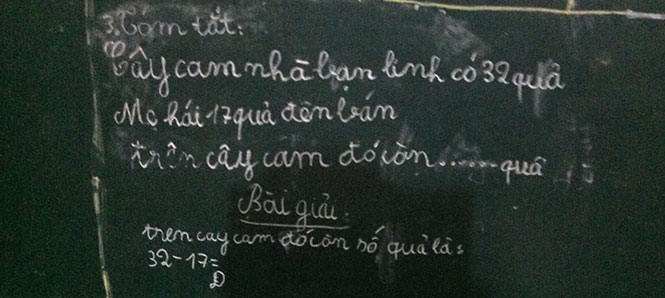 3. Tóm tắt:
Cây cam nhà bạn linh có 32 quả
Mẹ hái 17 quả đên bán
trên cây cam đó còn ...... quả
Bài giải:
tren cay cam đó còn số quả là:
32-17=
Đ